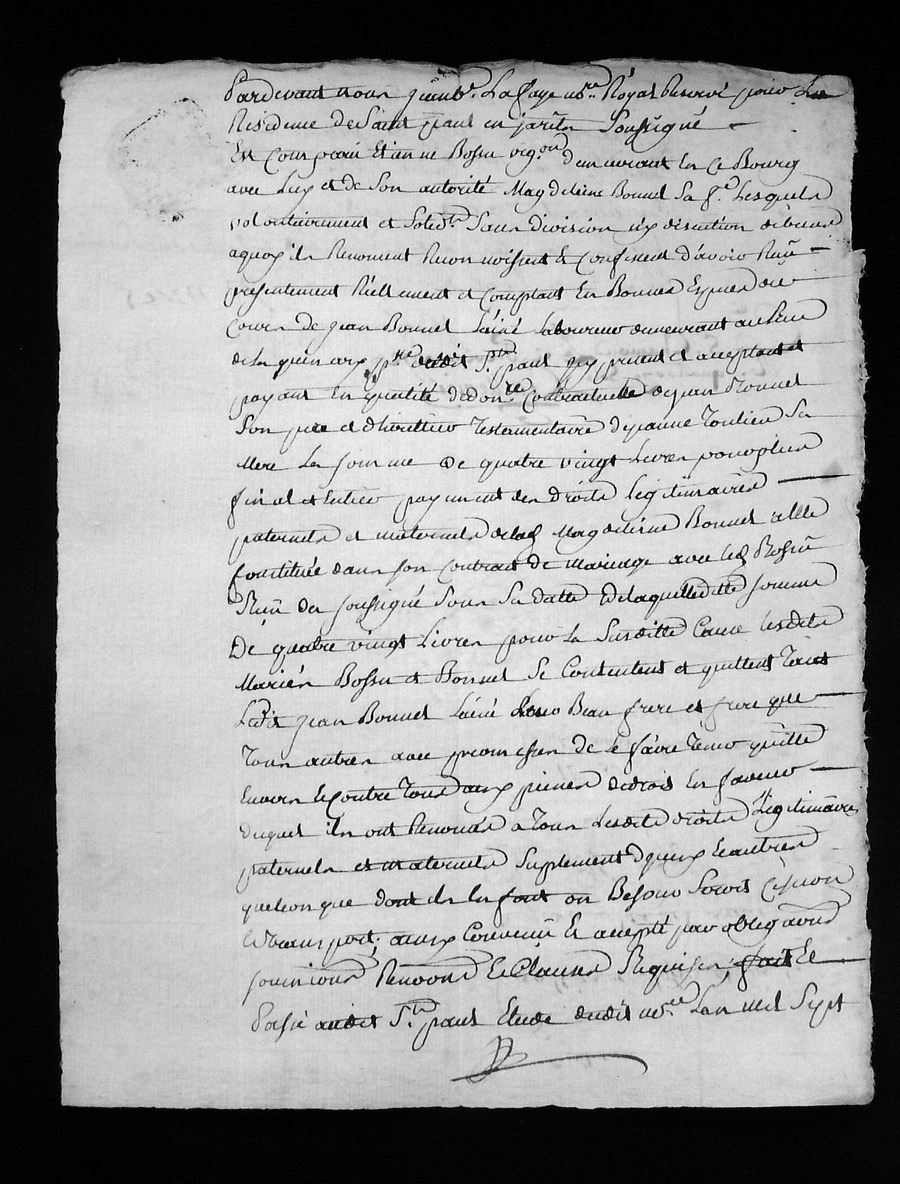 Pardevant nous quint. Lafaye nre. Royal Reservé pour La
Residence de Saint paul en jarets Soussigné
Est Comparu Etienne Bossu demeurant En Ce Bourg
avec Luy et de Son autorité Magdeleine Bonnet Sa f.e Lesquels
volontairement et Solid.t Sans division ny discution de biens
a quoy ils Renoncent Reconnoissent Et Confessent d'avoir Reçû
presentement Réellement et Comptant En Bonnes Especes de
Cours de jean Bonnet L'ainé Laboureur demeurant au Lieu
de la p.sse dudit S.t paul icy present et acceptant et
payant En qualité de don.re Contractuelle de jean Bonnet
Son pere et d'heritier Testamentaire de jeanne Sa
Mere La Somme De quatre vingt Livres pour plein
final et Entier payement des droits Legitimaires
paternels et maternels de lad. Magdeleine Bonnet a Elle
Constituée dans son Contrat de Mariage avec led. Bossu
Reçû du soussigné Sous Sa datte de laquelleditte somme
De quatre vingt Livres pour La Susditte Cause Lesdits
Mariés Bossu et Bonnet Se Contentent et quittent Tant
Ledit jean Bonnet L'ainé Leur Beau frere et frere que
Tous autres avec promesses de le faire Tenir quitte
Envers Et Contre Tous aux peines de droit En faveur
duquel ils ont Renoncés a Tous Lesdits droits Légitimaires
paternels et maternels Suplement d'yceux Et autres
quelconque dont ils Luy font au Besoin Cession
et Transport, ainsy Convenû Et accepté par oblig.
Renonc. Et Clauses Requises, fait Et
Passé audit S.t paul Etude dudit nre. L'an mil Sept